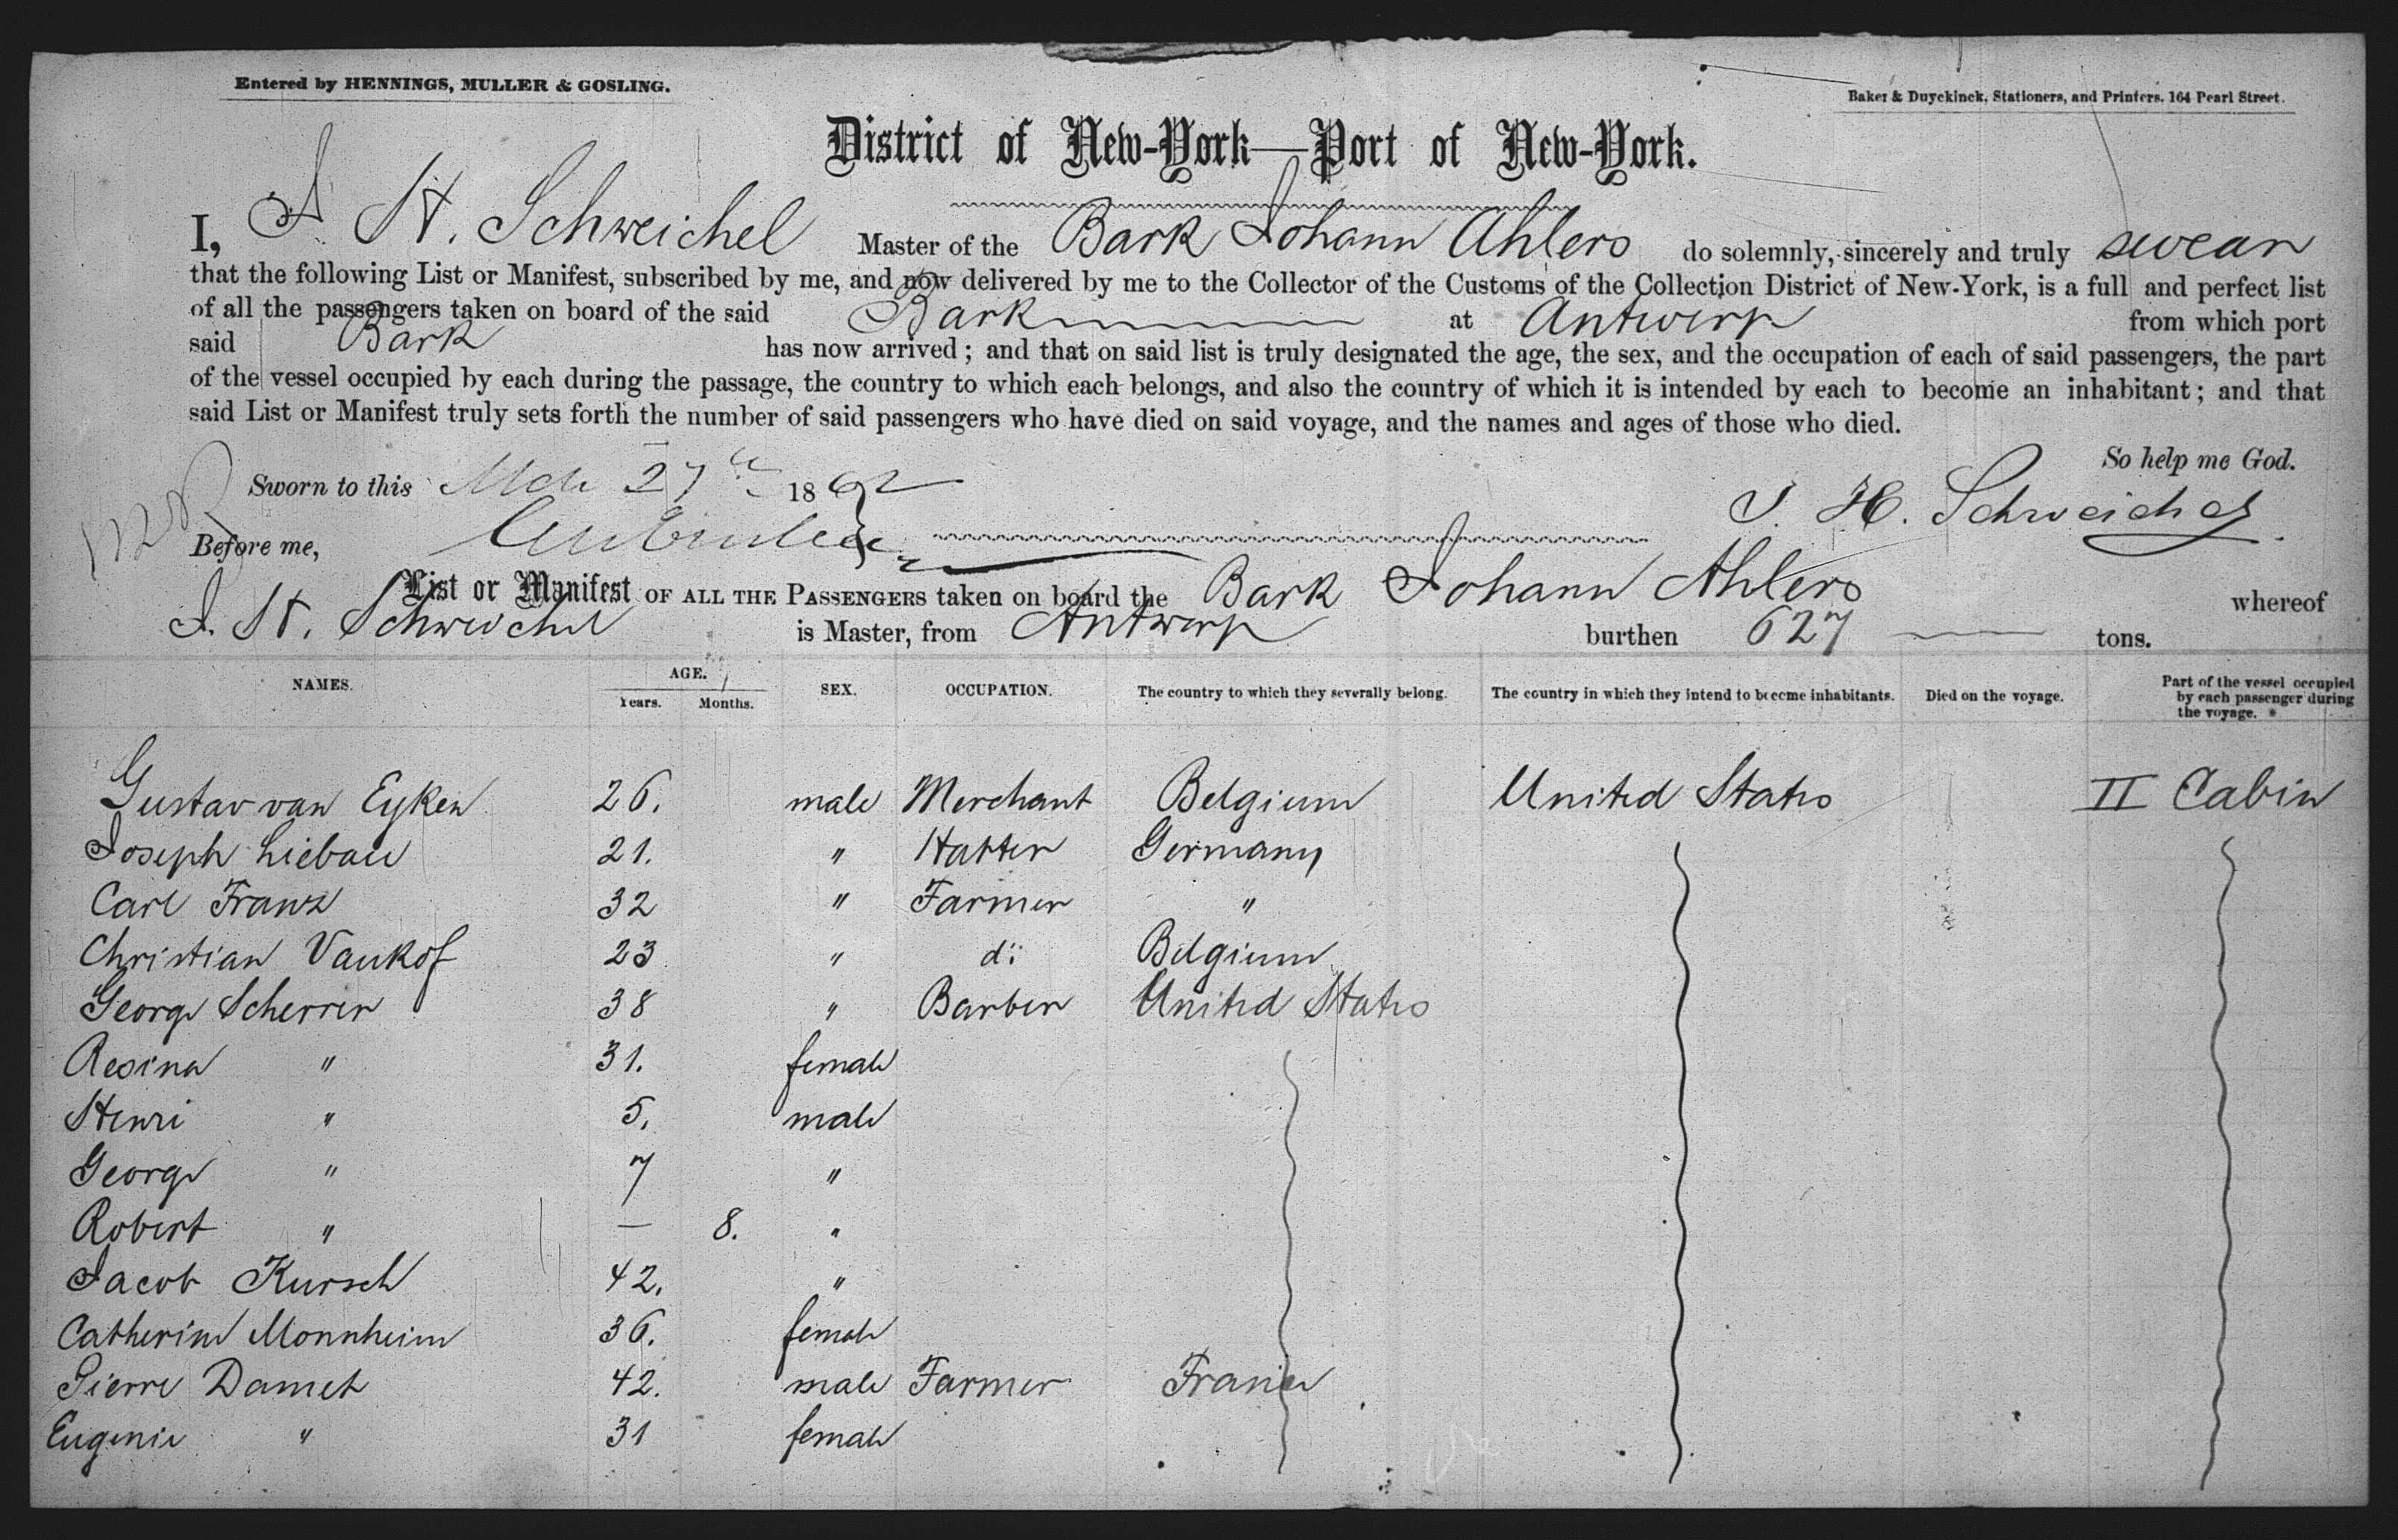 Entered by HENNINGS, MULLER & GOSLING.
Baker & Duyckinck, Stationers, and Printers. 164 Pearl Street.
District of New-York—Port of New-York.
I, J. H. Schweichel Master of the Bark Johann Ahlers do solemnly, sincerely and truly swear
that the following List or Manifest, subscribed by me, and now delivered by me to the Collector of the Customs of the Collection District of New-York, is a full and perfect list
of all the passengers taken on board of the said Bark at Antwerp from which port
said Bark has now arrived; and that on said list is truly designated the age, the sex, and the occupation of each of said passengers, the part
of the vessel occupied by each during the passage, the country to which each belongs, and also the country of which it is intended by each to become an inhabitant; and that
said List or Manifest truly sets forth the number of said passengers who have died on said voyage, and the names and ages of those who died.
So help me God.
Sworn to this Mch 27th 1862
J. H. Schweichel
Before me,
List or Manifest OF ALL THE PASSENGERS taken on board the Bark Johann Ahlers whereof
J. H. Schweichel is Master, from Antwerp burthen 627 tons.
NAMES. AGE. Years. Months. SEX. OCCUPATION. The country to which they severally belong. The country in which they intend to become inhabitants. Died on the voyage. Part of the vessel occupied by each passenger during the voyage.
Gustav van Eyken 26. male Merchant Belgium United States II Cabin
Joseph Liebau 21. " Hatter Germany
Carl Franz 32 " Farmer "
Christian Vankof 23 " do: Belgium
George Scherrer 38 " Barber United States
Resina " 31. female
Henri " 5. male
George " 7 "
Robert " — 8. "
Jacob Kursch 42. "
Catherine Monnheim 36. female
Pierre Damet 42. male Farmer France
Eugenie " 31 female